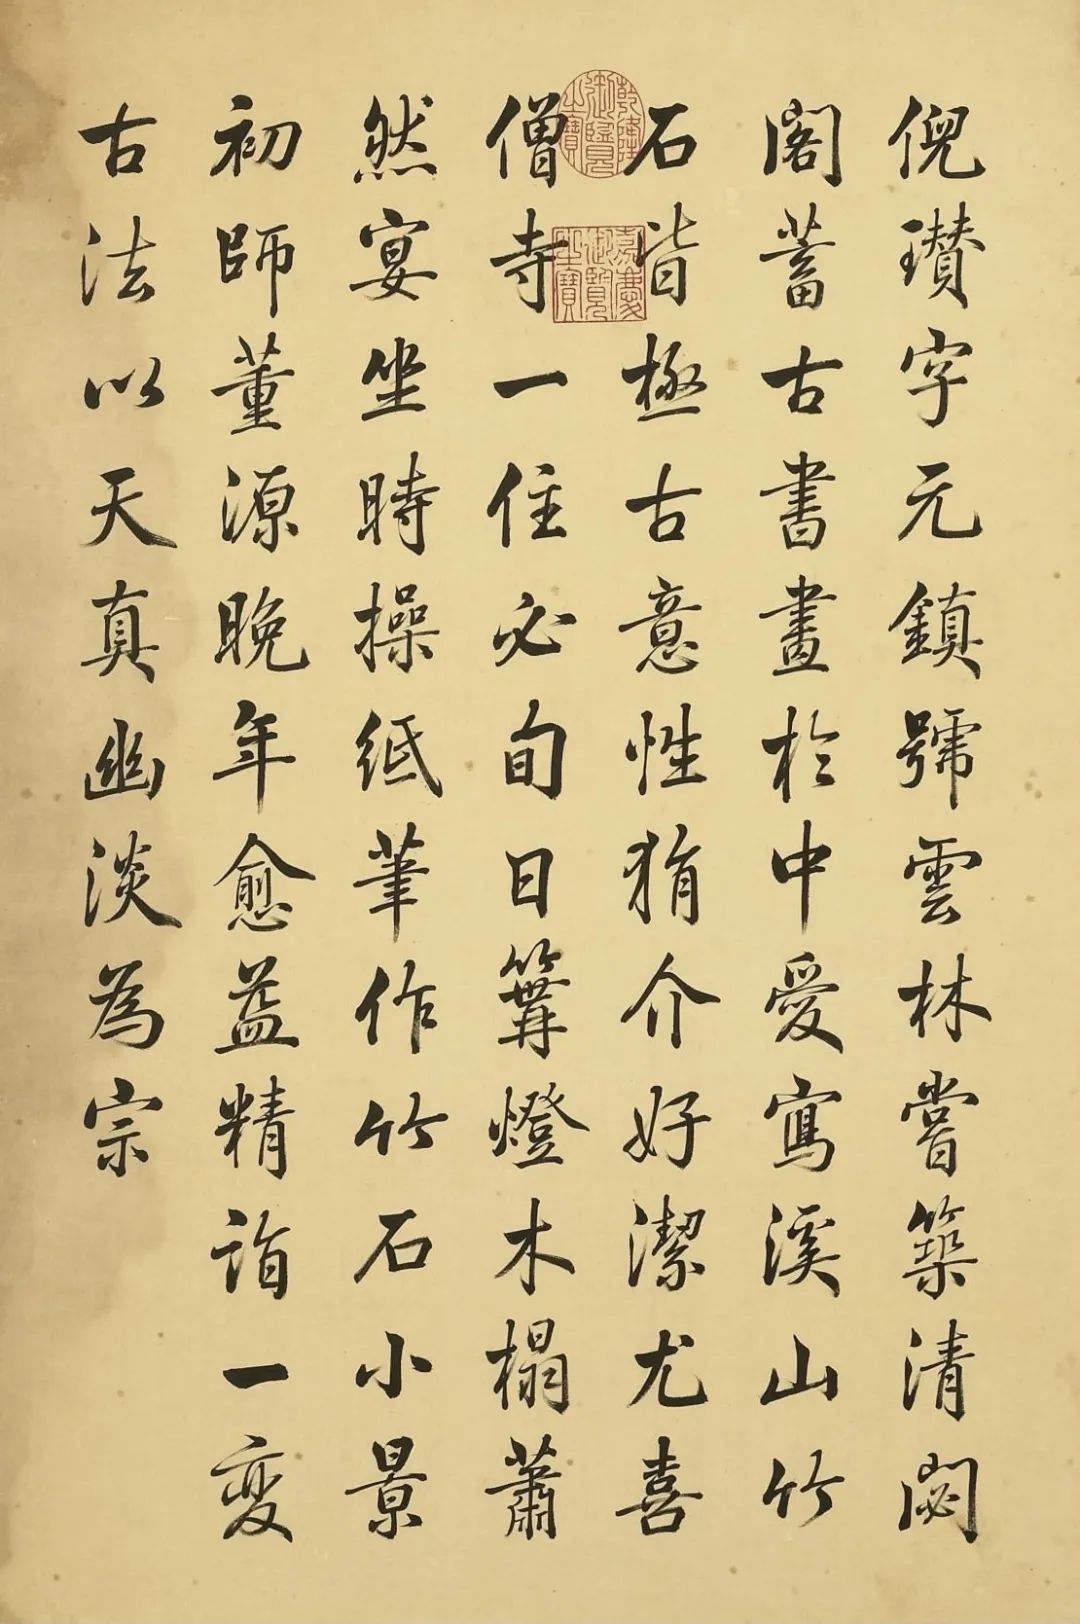 倪瓚字元鎮號雲林嘗築清閟
閣蓄古書畫於中愛寫溪山竹
石皆極古意性狷介好潔尤喜
僧寺一住必旬日篝燈木榻蕭
然宴坐時操紙筆作竹石小景
初師董源晚年愈益精詣一變
古法以天真幽淡為宗
乾隆御覽之寶
嘉慶御覽之寶